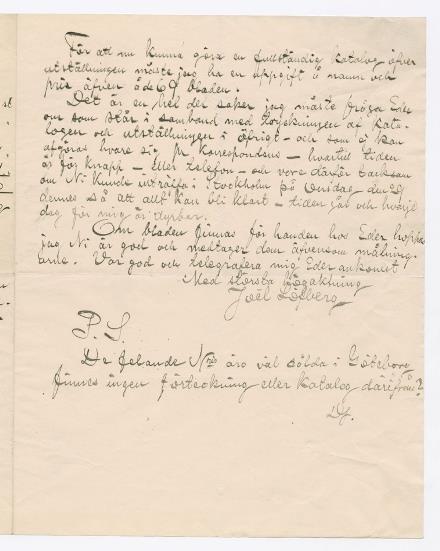 För att nu kunna göra en fullständig katalog öfver
utställningen måste jag ha en uppgift å namn och
pris äfven å de 69 bladen.
Det är en hel del saker jag måste fråga Eder
om som står i samband med tryckningen af kata-
logen och utställningen i öfrigt - och som ej kan
afgöras vare sig pr korrespondens - hvartill tiden
är för knapp - eller telefon - och vore därför tacksam
om Ni kunde inträffa i Stockholm på Onsdag den
dennes så att allt kan bli klart - tiden går och hvarje
dag för mig är dyrbar.
Om bladen finnas för handen hos Eder hoppas
jag Ni är god och medtager dem äfvensom målning-
arne. Var god och telegrafera mig Eder ankomst
Med största Högaktning
Joël
P. S.
De felande Nris äro väl sålda i Göteborg
finnes ingen förteckning eller katalog därifrån?